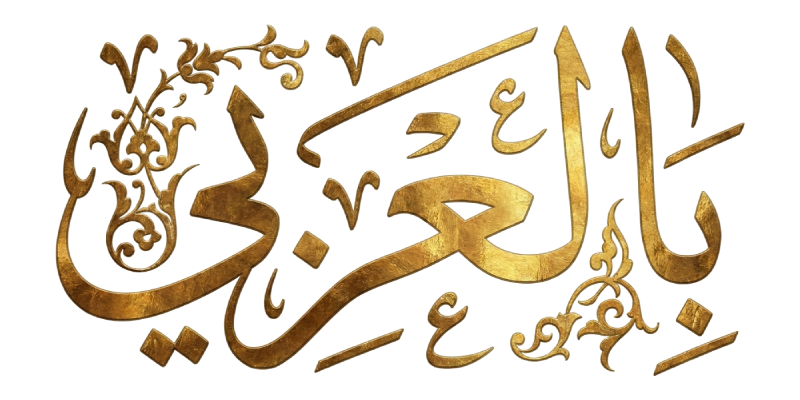 بِالعَربي